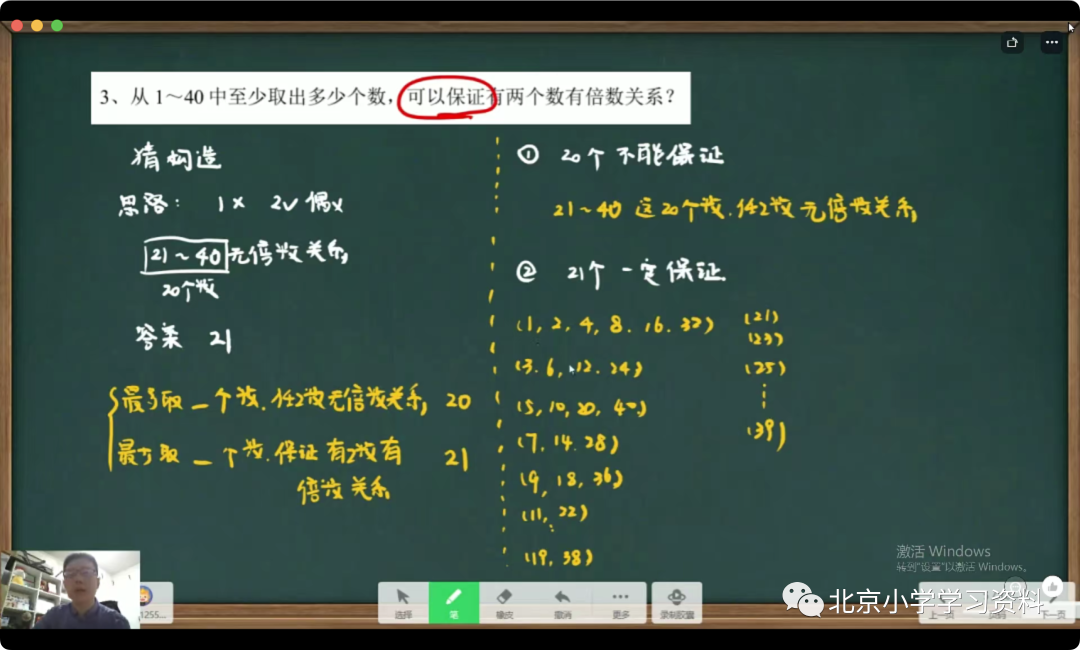 3、从 1～40 中至少取出多少个数，可以保证有两个数有倍数关系？
猜构造
思路： 1× 2√ 偶×
21～40 无倍数关系
20个数
答案 21
最多取 _ 个数.任2数无倍数关系 20
最少取 _ 个数.保证有2数有 21
倍数关系
① 20个 不能保证
21～40 这20个数.任2数无倍数关系
② 21个 一定保证.
(1, 2, 4, 8. 16. 32) (21)
(23)
(3. 6, 12. 24) (25)
(5, 10, 20, 40)
(39)
(7, 14. 28)
(9, 18, 36)
(11, 22)
(19, 38)
激活 Windows
转到"设置"以激活 Windows。
1255...
选择 笔 橡皮 撤消 更多 录制胶囊
北京小学学习资料
上一页 下一页